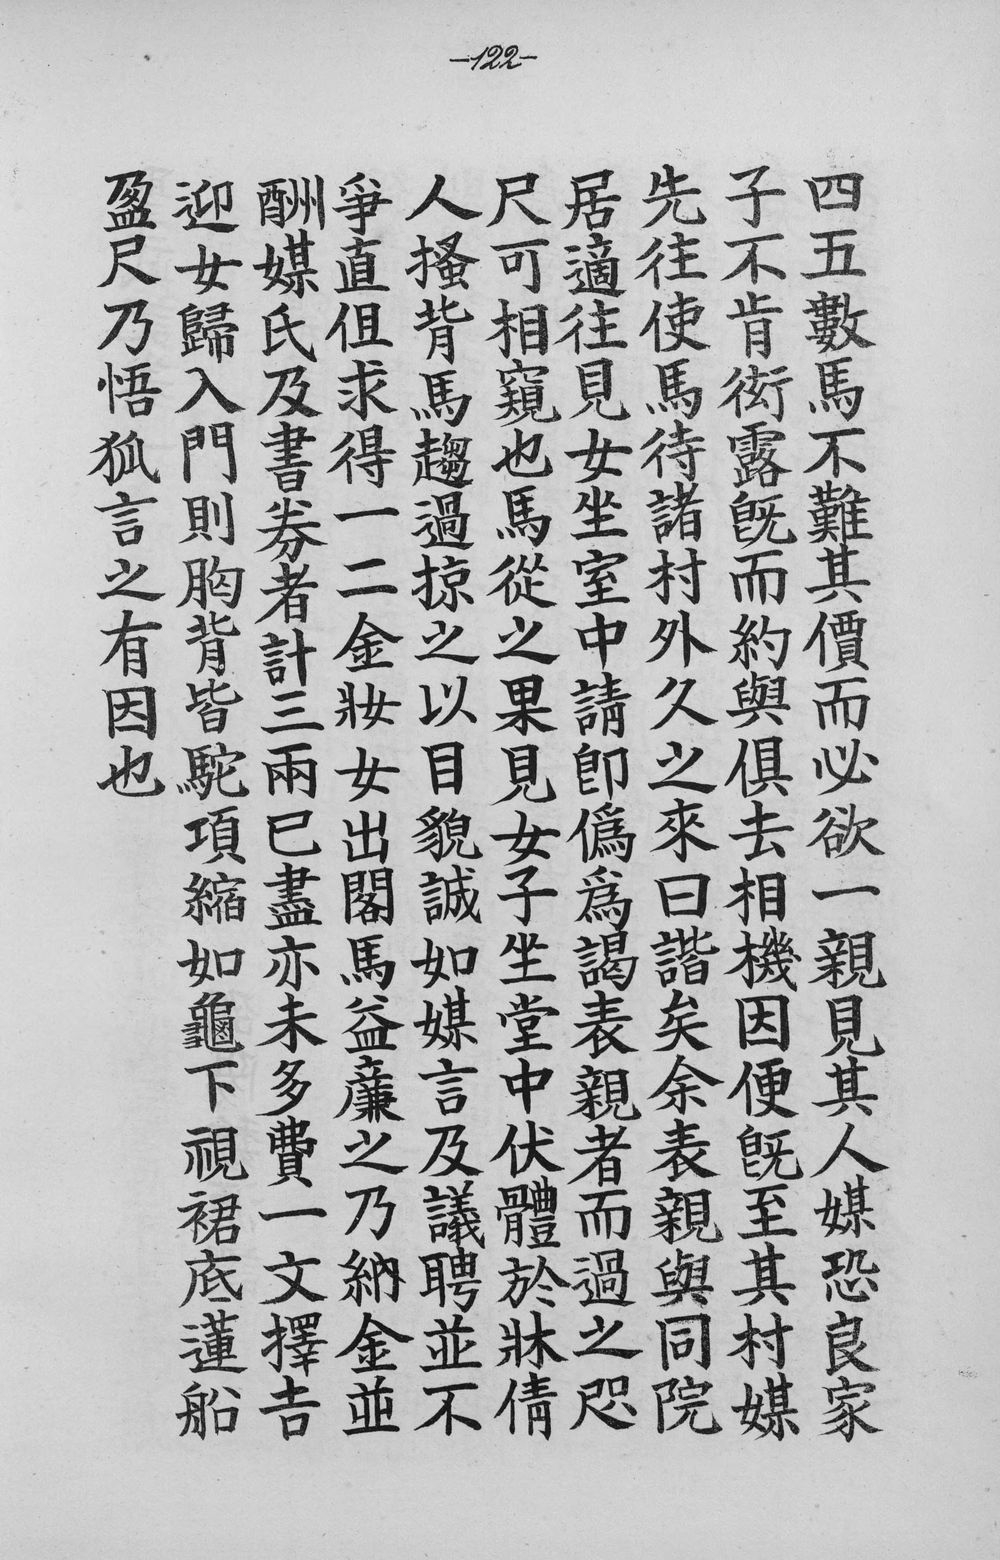 -122-
四五數馬不難其價而必欲一親見其人媒恐良家
子不肯衒露旣而約與俱去相機因便旣至其村媒
先往使馬待諸村外久之來曰諧矣余表親與同院
居適往見女坐室中請卽僞爲謁表親者而過之咫
尺可相窺也馬從之果見女子坐堂中伏體於牀倩
人搔背馬趨過掠之以目貌誠如媒言及議聘並不
爭直但求得一二金妝女出閣馬益廉之乃納金並
酬媒氏及書券者計三兩已盡亦未多費一文擇吉
迎女歸入門則胸背皆駝項縮如龜下視裙底蓮船
盈尺乃悟狐言之有因也